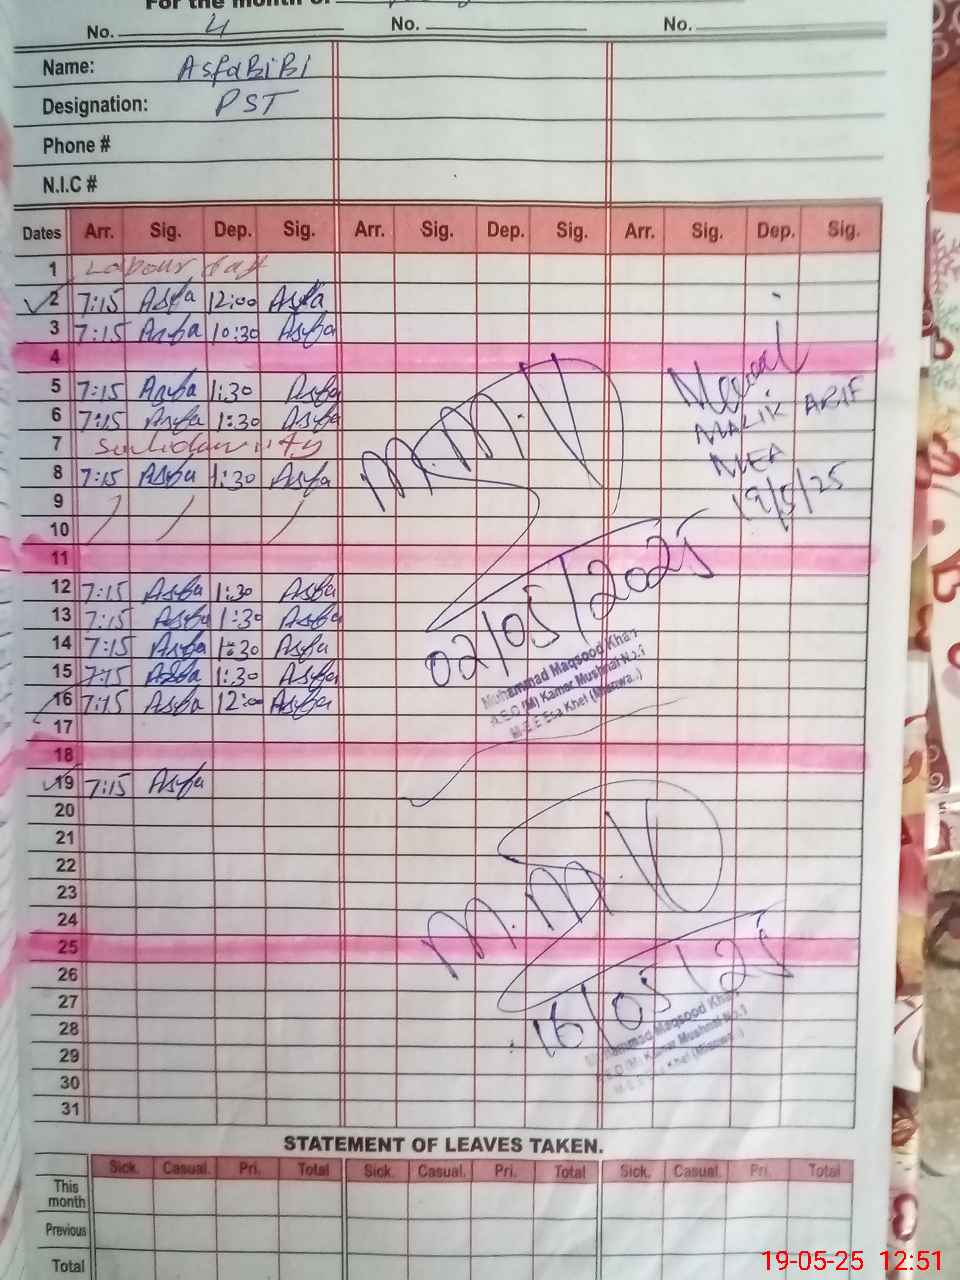 For the month of
No. 4 No. No.
Name: Asfa BiBi
Designation: PST
Phone #
N.I.C #
Dates Arr. Sig. Dep. Sig. Arr. Sig. Dep. Sig. Arr. Sig. Dep. Sig.
1 Labour day
2 7:15 Asfa 12:00 Asfa
3 7:15 Asfa 10:30 Asfa
4
5 7:15 Asfa 1:30 Asfa
6 7:15 Asfa 1:30 Asfa
7
8 7:15 Asfa 1:30 Asfa
9
10
11
12 7:15 Asfa 1:30 Asfa
13 7:15 Asfa 1:30 Asfa
14 7:15 Asfa 1:30 Asfa
15 7:15 Asfa 1:30 Asfa
16 7:15 Asfa 12:00 Asfa
17
18
19 7:15 Asfa
20
21
22
23
24
25
26
27
28
29
30
31
MALIK ARIF
MEA
19/5/25
M.M.
02/05/2025
Muhammad Maqsood Khan
A.E.O (M) Kamar Mushnai No.1
M.E.E Esa Khel
M.M.
16/05/25
Muhammad Maqsood Khan
A.E.O (M) Kamar Mushnai No.1
M.E.E Esa Khel
STATEMENT OF LEAVES TAKEN.
Sick. Casual. Pri. Total Sick. Casual. Pri. Total Sick. Casual. Pri. Total
This month
Previous
Total
19-05-25 12:51